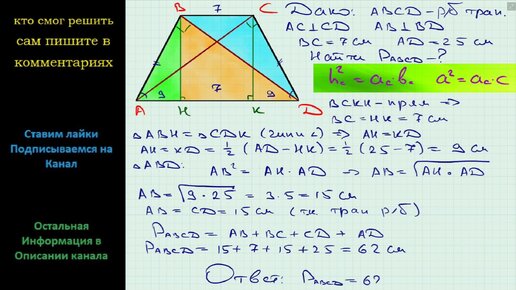 кто смог решить
сам пишите в
комментариях
Ставим лайки
Подписываемся на
Канал
Остальная
Информация в
Описании канала
B 7 C
9 7 9
A H K D
Дано: ABCD – р/б трап.
AC⊥CD AB⊥BD
BC = 7 см AD = 25 см
Найти P_ABCD – ?
h_c² = a_c·b_c a² = a_c·c
BCKH – прям ⇒
BC = HK = 7 см
△ABH = △CDK (гип и ∠) ⇒ AH = KD
AH = KD = 1/2 (AD – HK) = 1/2 (25 – 7) = 9 см
△ABD: AB² = AH · AD ⇒ AB = √AH · AD
AB = √9 · 25 = 3·5 = 15 см
AB = CD = 15 см (т.к. трап р/б)
P_ABCD = AB + BC + CD + AD
P_ABCD = 15 + 7 + 15 + 25 = 62 см
Ответ: P_ABCD = 62